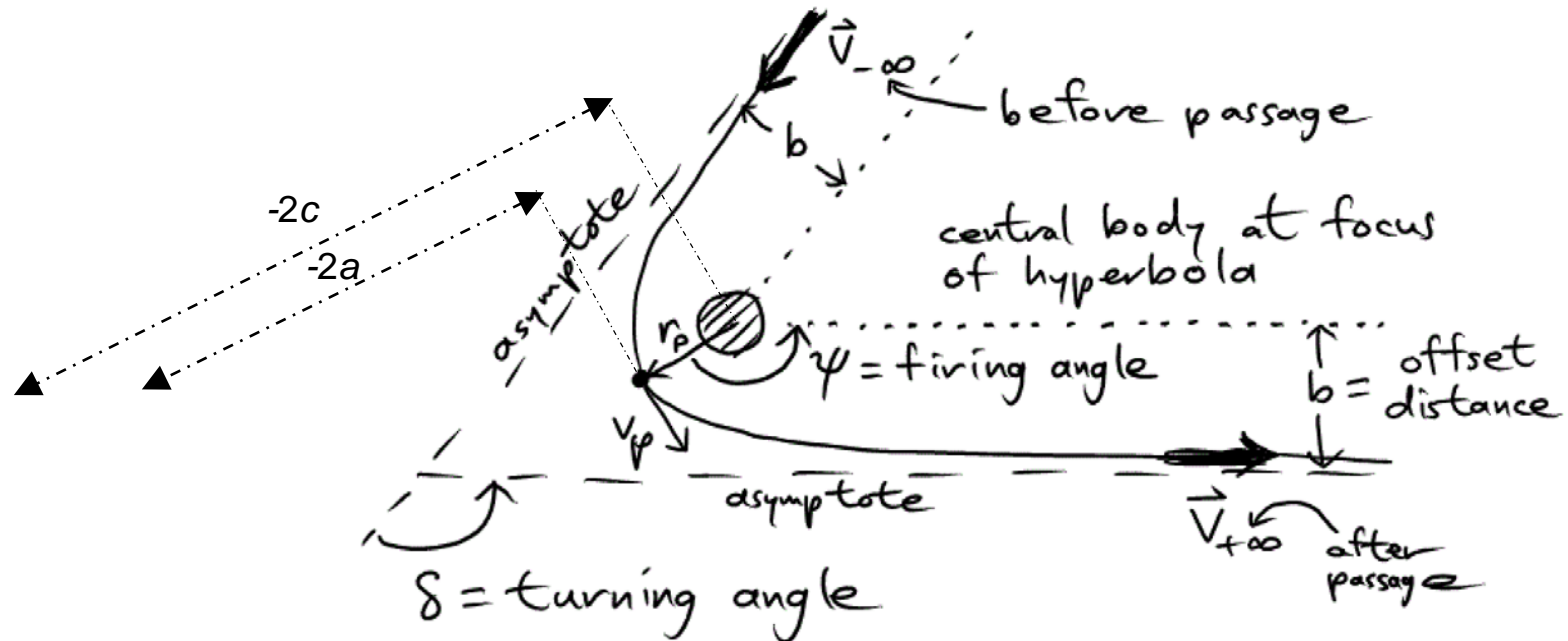 V⃗₋∞
before passage
b
-2c
-2a
asymptote
central body at focus
of hyperbola
rₚ
ψ = firing angle
b = offset
distance
vₚ
asymptote
V⃗₊∞
after
passage
δ = turning angle